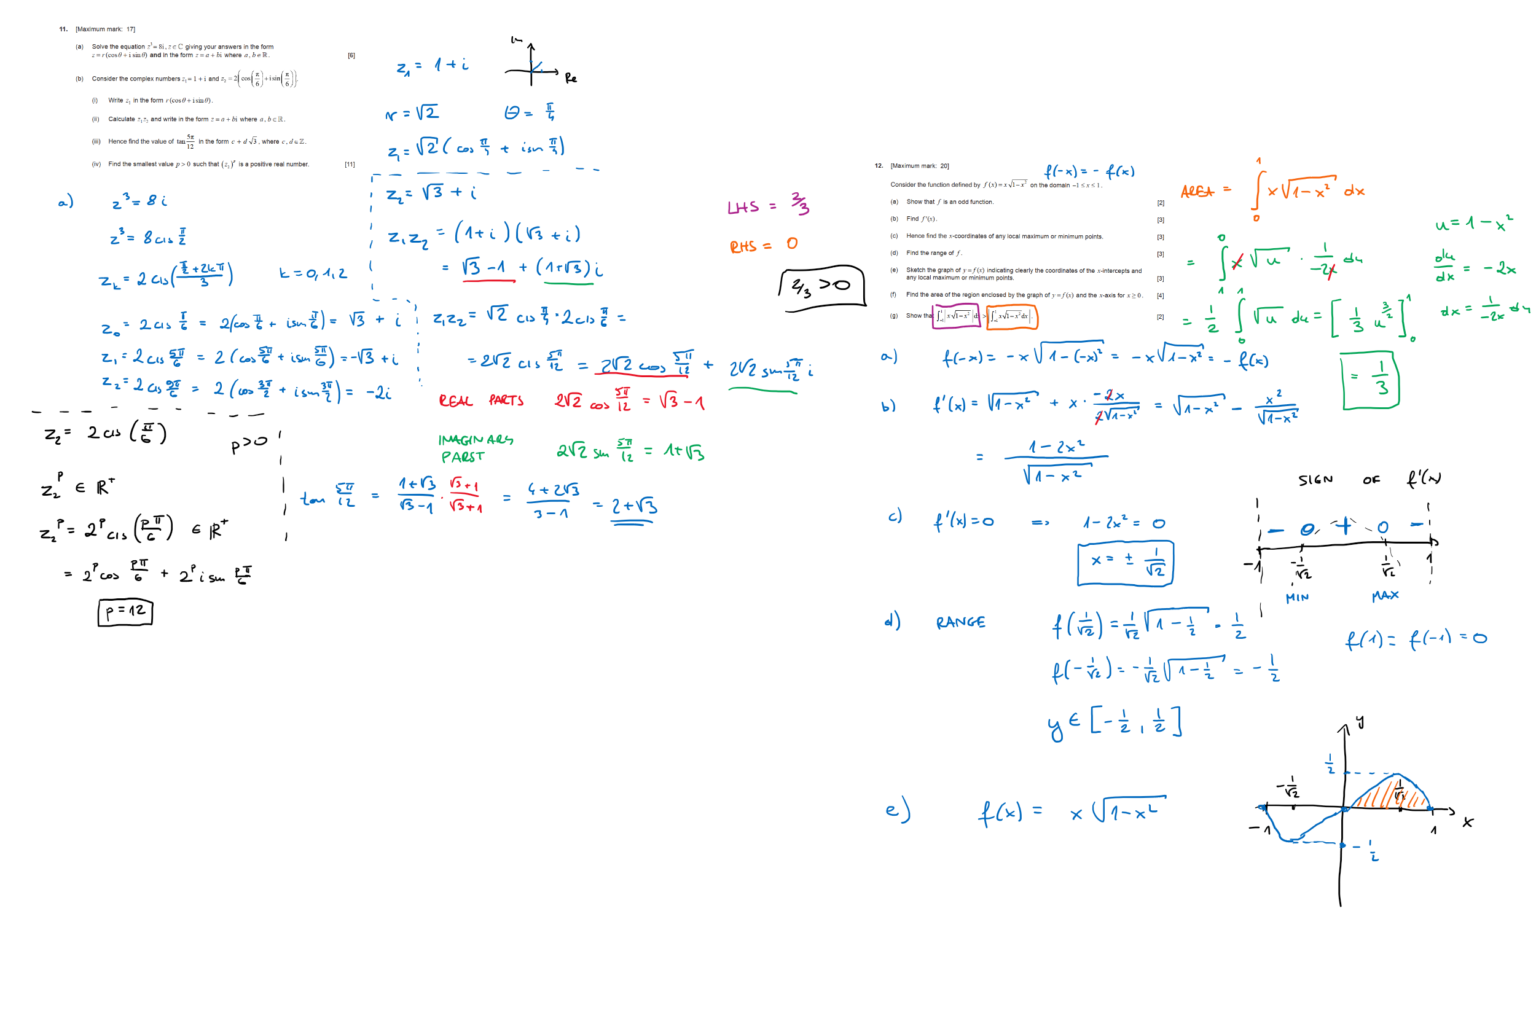 11. [Maximum mark: 17]
(a) Solve the equation z³ = 8i, z ∈ ℂ giving your answers in the form
z = r(cosθ + i sinθ) and in the form z = a + bi where a, b ∈ ℝ. [6]
(b) Consider the complex numbers z₁ = 1 + i and z₂ = 2(cos(π/6) + i sin(π/6)).
(i) Write z₁ in the form r(cosθ + i sinθ).
(ii) Calculate z₁z₂ and write in the form z = a + bi where a, b ∈ ℝ.
(iii) Hence find the value of tan 5π/12 in the form c + d√3, where c, d ∈ ℤ.
(iv) Find the smallest value p > 0 such that (z₂)^p is a positive real number. [11]
a) z³ = 8i
z³ = 8 cis π/2
z_k = 2 cis((π/2 + 2kπ)/3) k = 0, 1, 2
z₀ = 2 cis π/6 = 2(cos π/6 + i sin π/6) = √3 + i
z₁ = 2 cis 5π/6 = 2(cos 5π/6 + i sin 5π/6) = -√3 + i
z₂ = 2 cis 9π/6 = 2(cos 3π/2 + i sin 3π/2) = -2i
z₂ = 2 cis(π/6) p > 0
z₂^p ∈ ℝ⁺
z₂^p = 2^p cis(pπ/6) ∈ ℝ⁺
= 2^p cos pπ/6 + 2^p i sin pπ/6
p = 12
z₁ = 1 + i
Re
r = √2 θ = π/4
z₁ = √2(cos π/4 + i sin π/4)
z₂ = √3 + i
z₁z₂ = (1+i)(√3 + i)
= √3 - 1 + (1+√3)i
z₁z₂ = √2 cis π/4 · 2 cis π/6 =
= 2√2 cis 5π/12 = 2√2 cos 5π/12 + 2√2 sin 5π/12 i
REAL PARTS 2√2 cos 5π/12 = √3 - 1
IMAGINARY
PARST 2√2 sin 5π/12 = 1+√3
tan 5π/12 = (1+√3)/(√3-1) · (√3+1)/(√3+1) = (4+2√3)/(3-1) = 2+√3
LHS = 2/3
RHS = 0
2/3 > 0
12. [Maximum mark: 20]
f(-x) = - f(x)
Consider the function defined by f(x) = x√(1-x²) on the domain -1 ≤ x ≤ 1.
(a) Show that f is an odd function. [2]
(b) Find f'(x). [3]
(c) Hence find the x-coordinates of any local maximum or minimum points. [3]
(d) Find the range of f. [3]
(e) Sketch the graph of y = f(x) indicating clearly the coordinates of the x-intercepts and
any local maximum or minimum points. [3]
(f) Find the area of the region enclosed by the graph of y = f(x) and the x-axis for x ≥ 0. [4]
(g) Show that ∫₋₁¹ |x√(1-x²)| dx > |∫₋₁¹ x√(1-x²) dx|. [2]
AREA = ∫₀¹ x√(1-x²) dx
u = 1-x²
= ∫₁⁰ x√u · 1/(-2x) du
du/dx = -2x
dx = 1/(-2x) du
= 1/2 ∫₀¹ √u du = [1/3 u^(3/2)]₀¹
= 1/3
a) f(-x) = -x√(1-(-x)²) = -x√(1-x²) = - f(x)
b) f'(x) = √(1-x²) + x · -2x/(2√(1-x²)) = √(1-x²) - x²/√(1-x²)
= (1-2x²)/√(1-x²)
SIGN OF f'(x)
- 0 + 0 -
-1 -1/√2 1/√2 1
MIN MAX
c) f'(x) = 0 => 1-2x² = 0
x = ± 1/√2
d) RANGE f(1/√2) = 1/√2 √(1-1/2) = 1/2
f(1) = f(-1) = 0
f(-1/√2) = -1/√2 √(1-1/2) = -1/2
y ∈ [-1/2, 1/2]
e) f(x) = x√(1-x²)
y
1/2
-1/√2 1/√2
-1 1 x
-1/2